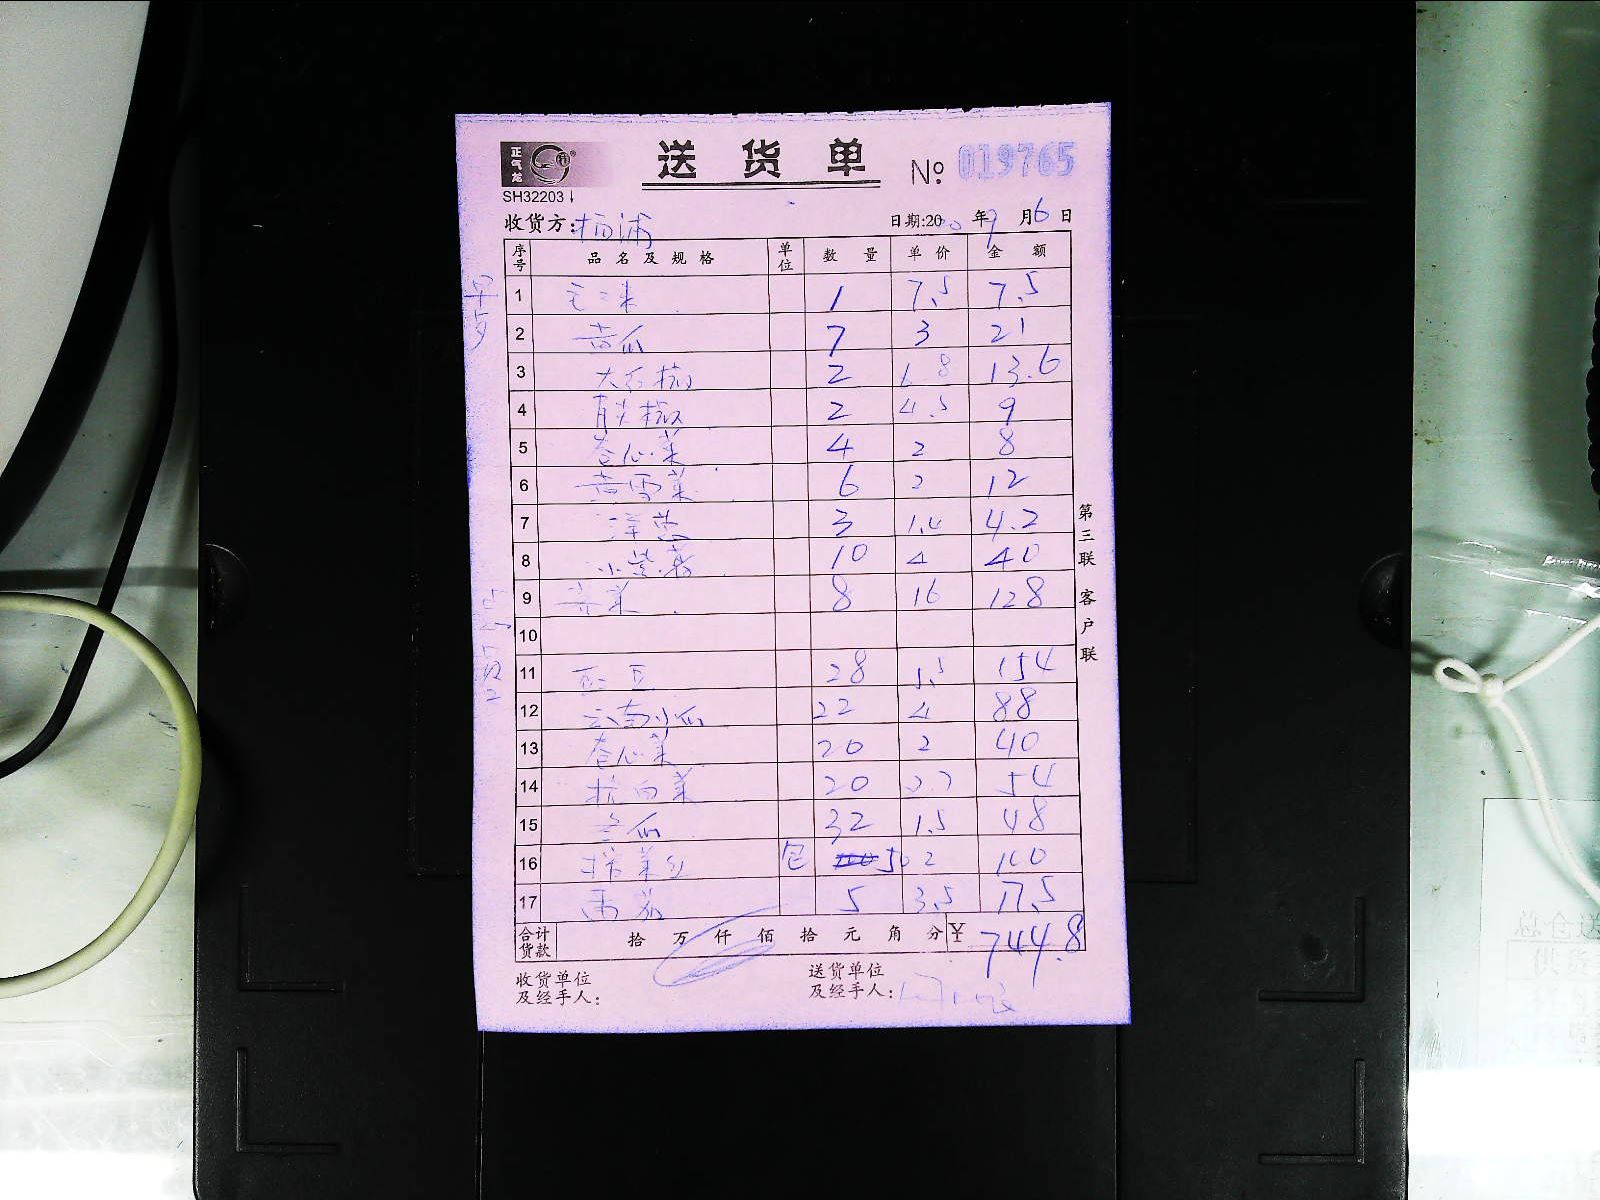 正气龙
送货单 No: 019765
SH32203
收货方: 杨浦 日期:2020年9月6日
序号 品名及规格 单位 数量 单价 金额
1 1 7.5 7.5
2 黄瓜 7 3 21
3 大红椒 2 6.8 13.6
4 青尖椒 2 4.5 9
5 卷心菜 4 2 8
6 6 2 12
7 洋芋 3 1.4 4.2
8 小紫薯 10 4 40
9 8 16 128
10
11 28 5.5 154
12 云南小瓜 22 4 88
13 卷心菜 20 2 40
14 杭白菜 20 2.7 54
15 冬瓜 32 1.5 48
16 榨菜丝 包 50 2 100
17 番茄 5 3.5 17.5
合计货款 拾 万 仟 佰 拾 元 角 分 ¥ 744.8
收货单位及经手人:
送货单位及经手人:
第三联 客户联